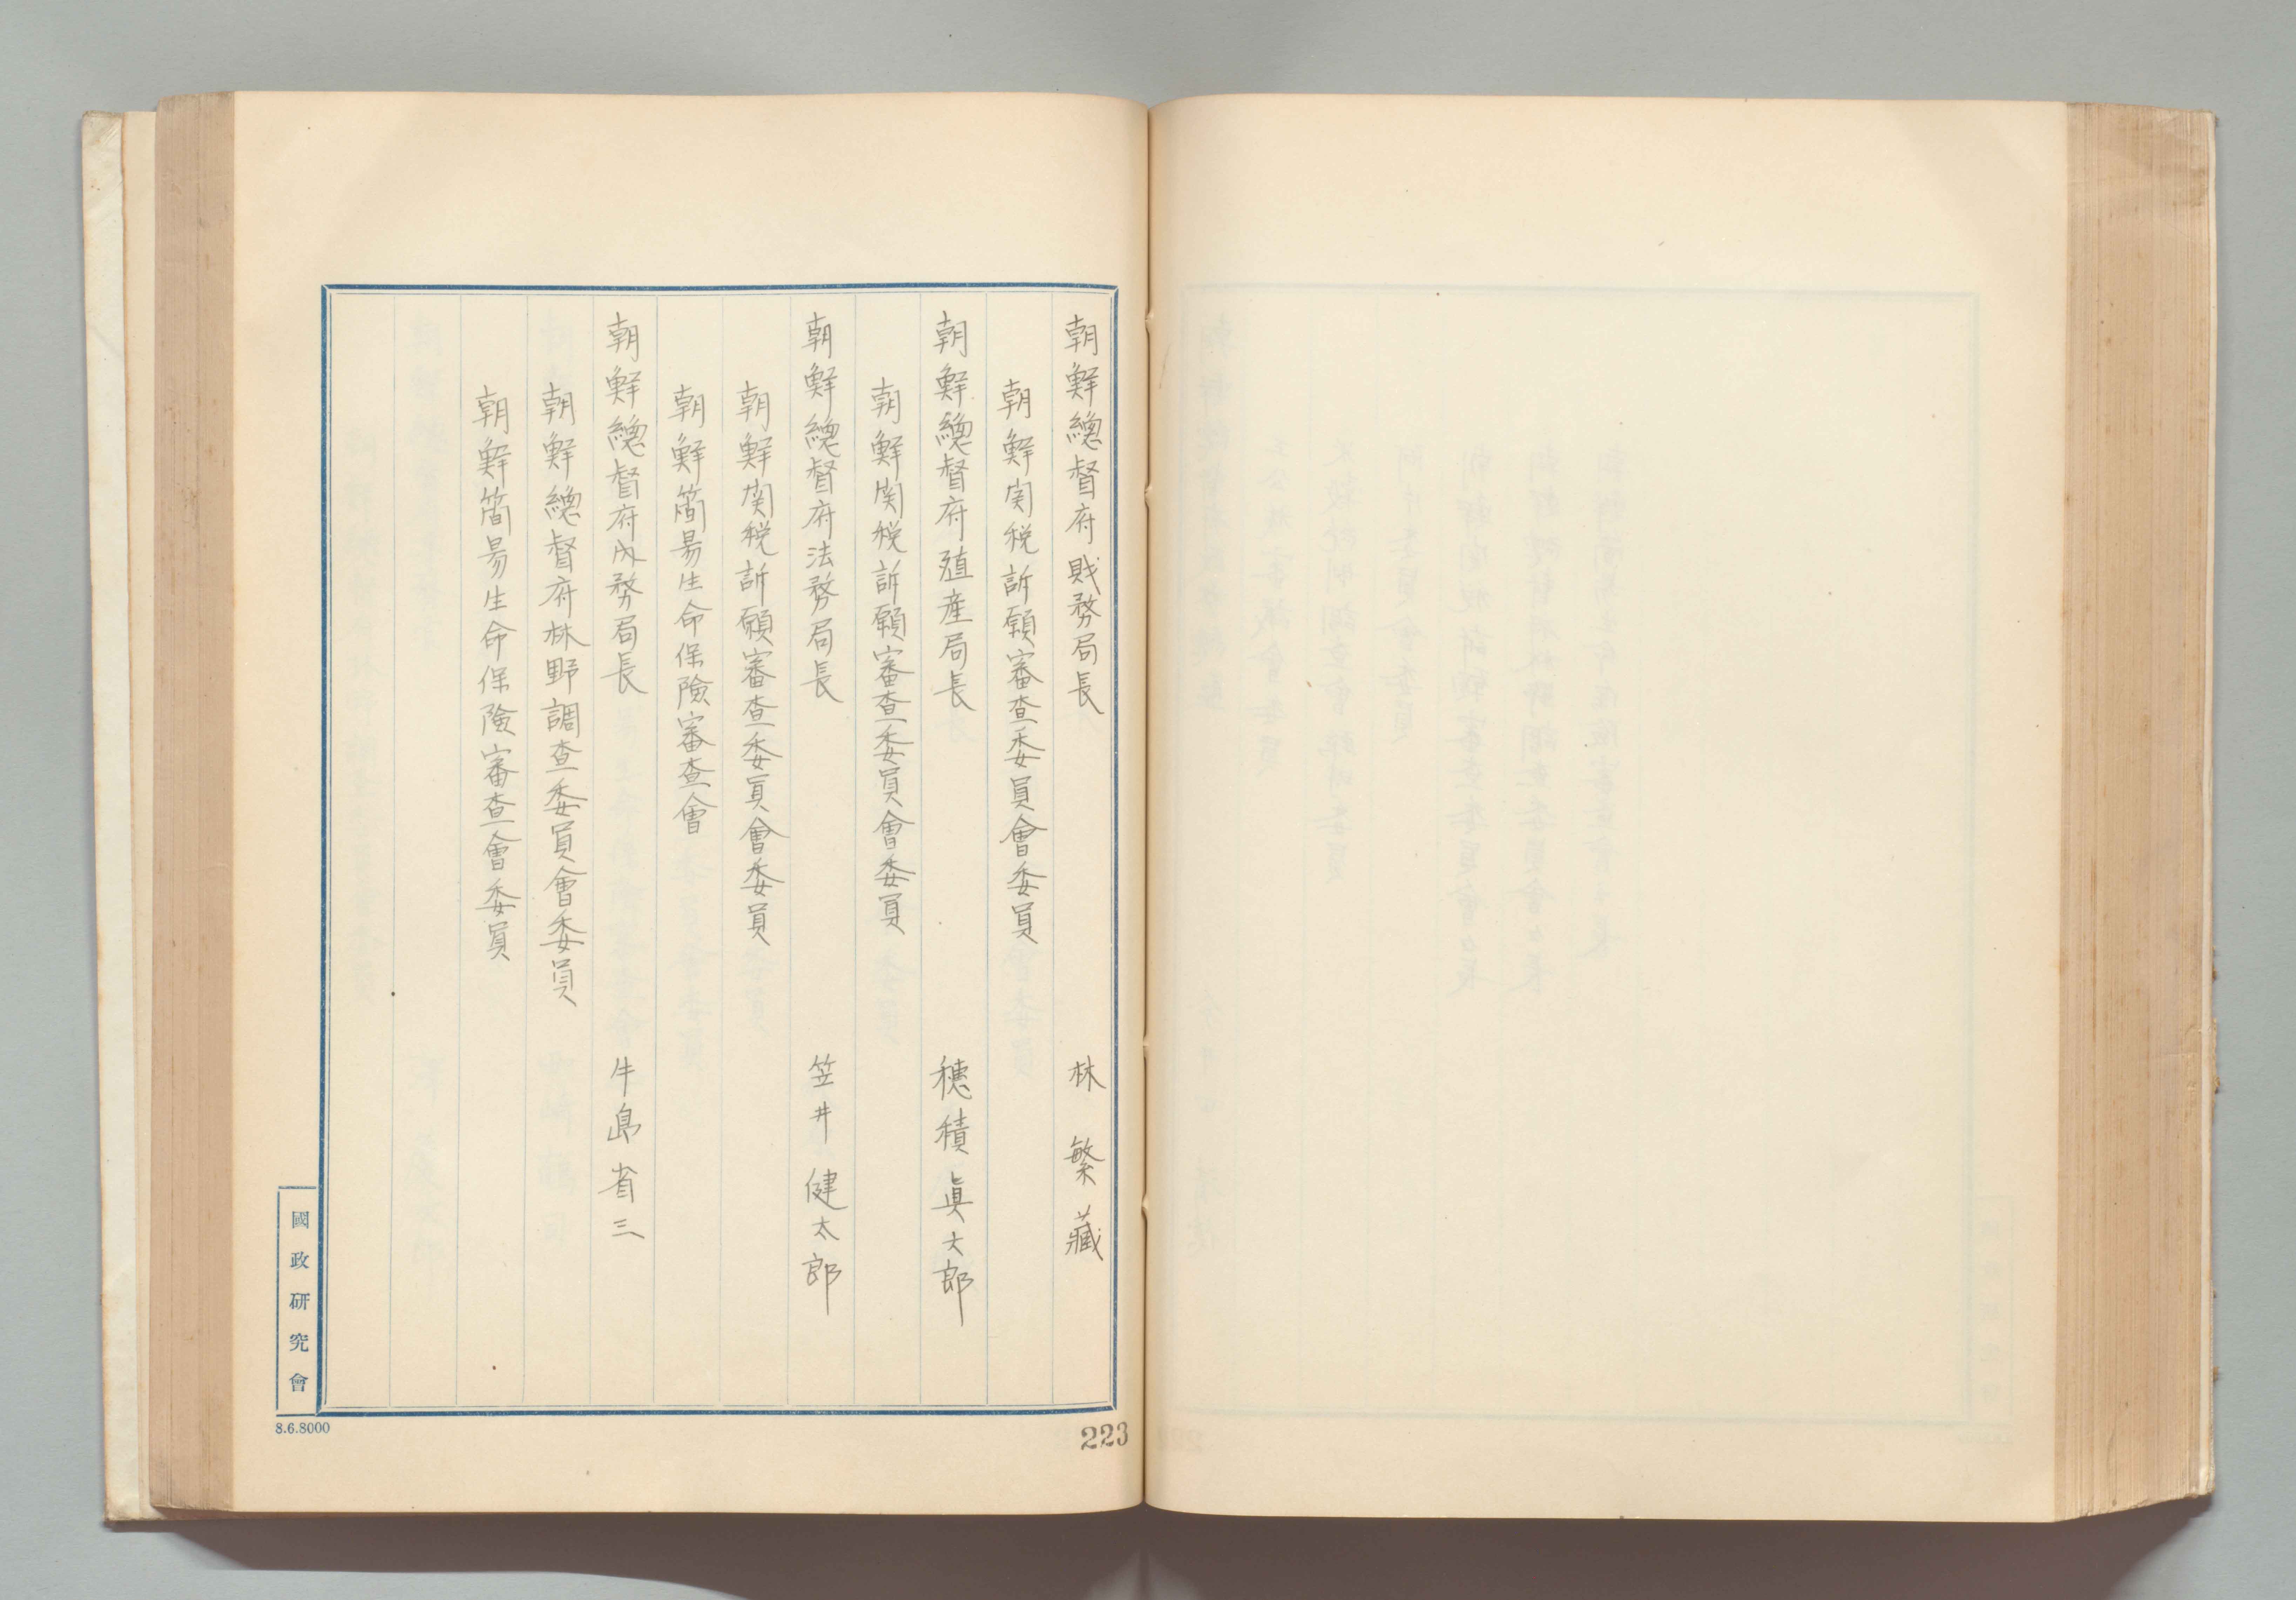 朝鮮總督府財務局長 林繁藏
朝鮮関税訴願審査委員會委員
朝鮮總督府殖産局長 穂積眞太郎
朝鮮関税訴願審査委員會委員
朝鮮總督府法務局長 笠井健太郎
朝鮮関税訴願審査委員會委員
朝鮮簡易生命保險審査會
朝鮮總督府内務局長 牛島省三
朝鮮總督府林野調査委員會委員
朝鮮簡易生命保險審査會委員
國政研究會
8.6.8000
223